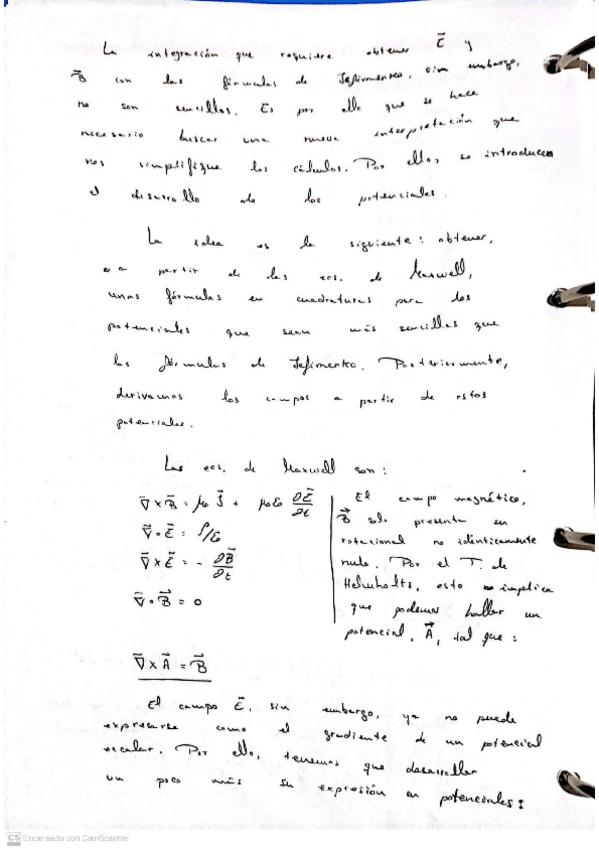 La integración que requiere obtener E⃗ y
B⃗ con las fórmulas de Jefimenko, sin embargo,
no son sencillas. Es por ello que se hace
necesario buscar una nueva interpretación que
nos simplifique los cálculos. Por ello, se introduce
el desarrollo de los potenciales.
La idea es la siguiente: obtener,
a partir de las ecs. de Maxwell,
unas fórmulas en cuadraturas para los
potenciales que sean más sencillas que
las fórmulas de Jefimenko. Posteriormente,
derivamos los campos a partir de estos
potenciales.
Las ecs. de Maxwell son:
∇⃗ × B⃗ = μ₀ J⃗ + μ₀ε₀ ∂E⃗/∂t
∇⃗ · E⃗ = ρ/ε₀
∇⃗ × E⃗ = - ∂B⃗/∂t
∇⃗ · B⃗ = 0
El campo magnético,
B⃗ solo presenta su
rotacional no idénticamente
nulo. Por el T. de
Helmholtz, esto implica
que podemos hallar un
potencial, A⃗, tal que:
∇⃗ × A⃗ = B⃗
El campo E⃗, sin embargo, ya no puede
expresarse como el gradiente de un potencial
escalar. Por ello, tenemos que desarrollar
un poco más su expresión en potenciales:
CS Escaneado con CamScanner